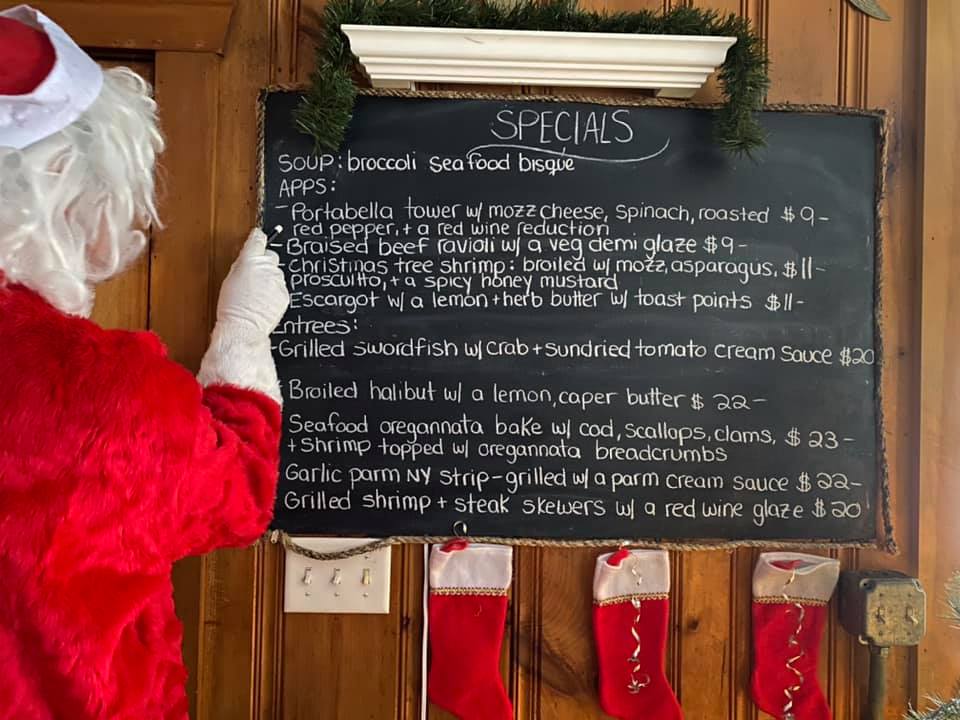 SPECIALS
SOUP: broccoli seafood bisque
APPS:
- Portabella tower w/ mozz cheese, spinach, roasted $9-
red pepper, + a red wine reduction
- Braised beef ravioli w/ a veg demi glaze $9-
- Christmas tree shrimp: broiled w/ mozz, asparagus, $11-
proscuitto, + a spicy honey mustard
Escargot w/ a lemon + herb butter w/ toast points $11-
Entrees:
- Grilled swordfish w/ crab + sundried tomato cream sauce $20
Broiled halibut w/ a lemon, caper butter $22-
Seafood oregannata bake w/ cod, scallops, clams, $23-
+ shrimp topped w/ oregannata breadcrumbs
Garlic parm NY strip - grilled w/ a parm cream sauce $22-
Grilled shrimp + steak skewers w/ a red wine glaze $20